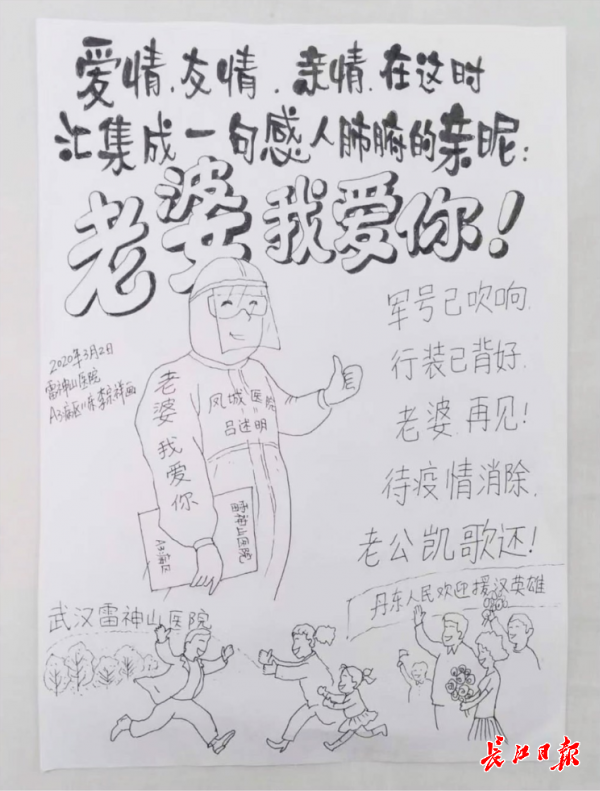 爱情、友情、亲情、在这时
汇集成一句感人肺腑的亲昵：
老婆我爱你！
2020年3月2日
雷神山医院
老婆我爱你
凤城医院
吕述明
雷神山医院
A3病区
军号已吹响、
行装已背好、
老婆、再见！
待疫情消除、
老公凯歌还！
武汉雷神山医院
丹东人民欢迎援汉英雄
长江日报